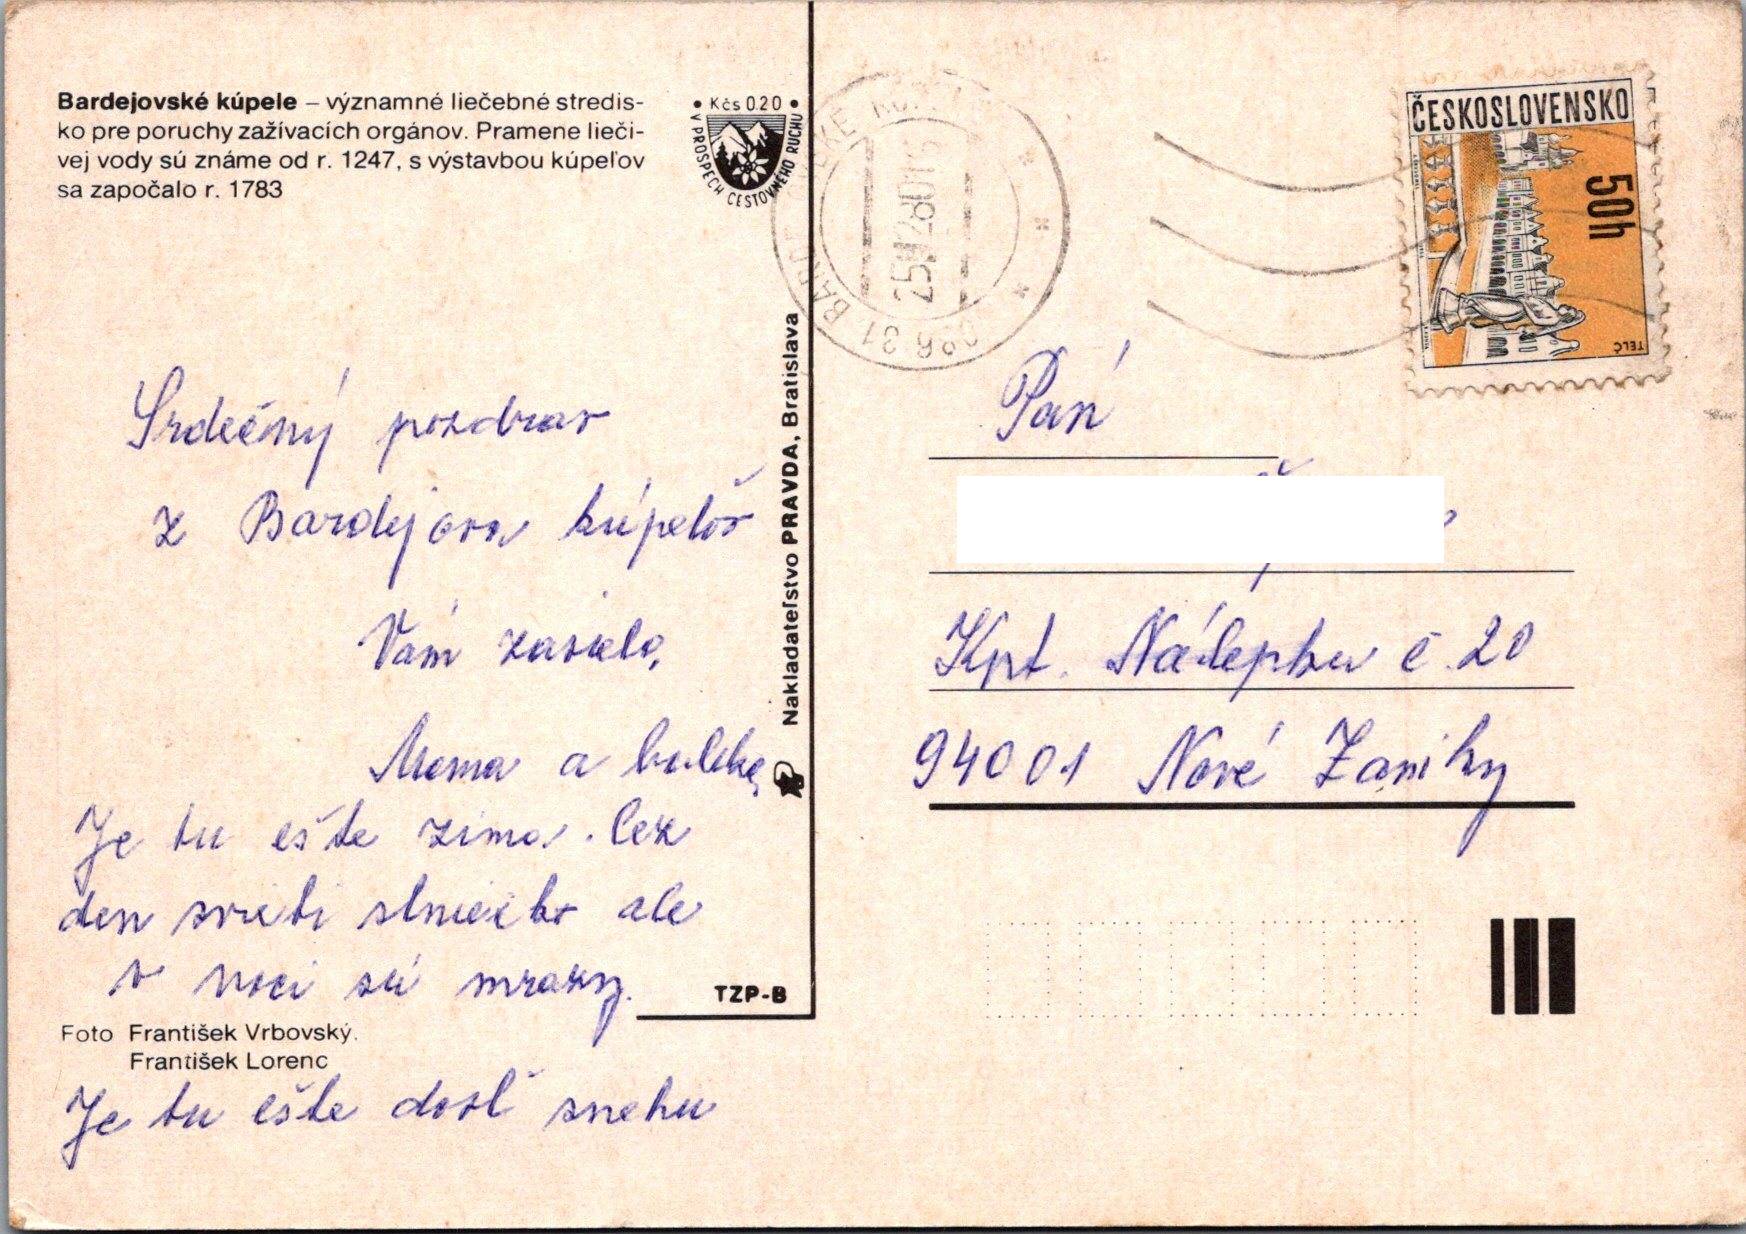 Bardejovské kúpele – významné liečebné stredis-
ko pre poruchy zažívacích orgánov. Pramene lieči-
vej vody sú známe od r. 1247, s výstavbou kúpeľov
sa započalo r. 1783
• Kčs 0.20 •
V PROSPECH CESTOVNÉHO RUCHU
ČESKOSLOVENSKO
50h
TELČ
086 31 BARDEJOVSKÉ KÚPELE
Srdečný pozdrav
z Bardejova kúpeľov
Vám zasiela,
Mama a
Je tu ešte zima. cez
den svieti slniečko ale
v noci sú mrazy.
Foto František Vrbovský.
František Lorenc
Je tu ešte dosť snehu
Nakladateľstvo PRAVDA, Bratislava
TZP-B
Pán
Kpt. Nálepku č. 20
94001 Nové Zamky